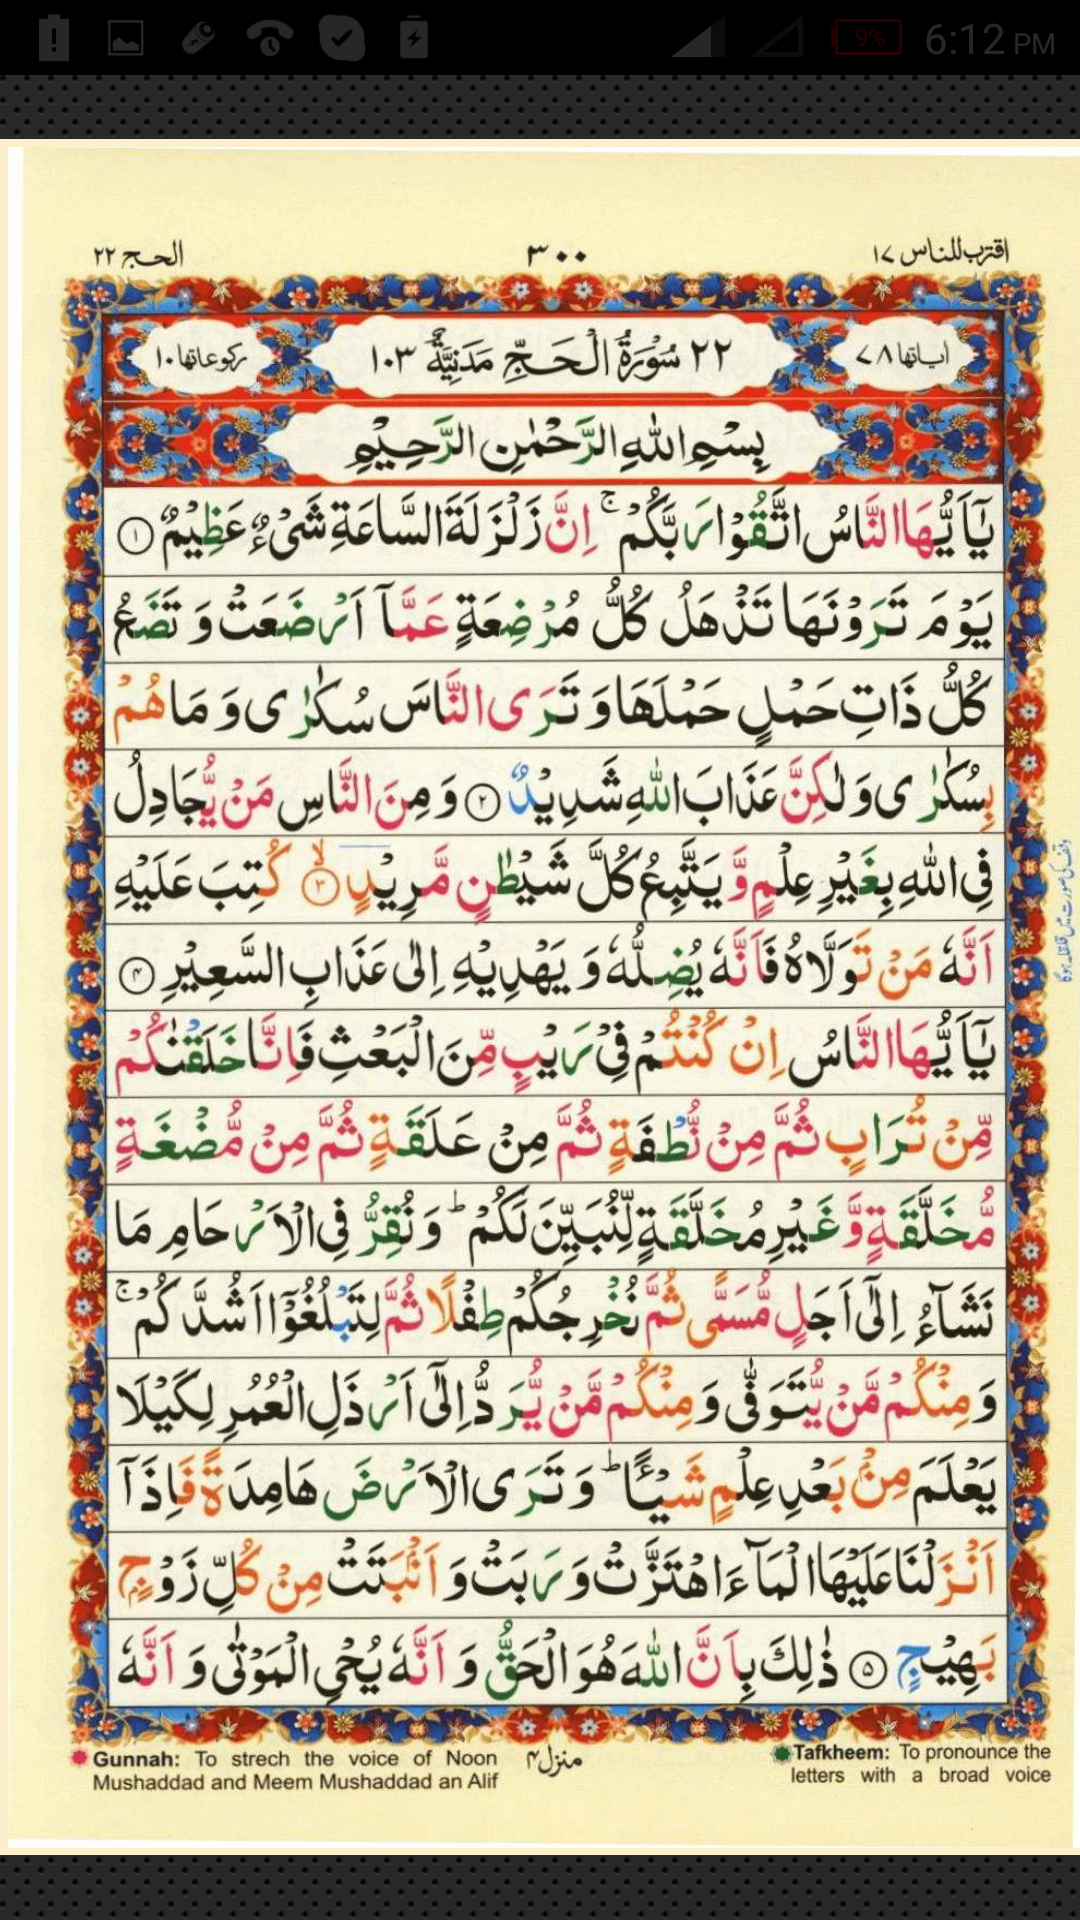 9% 6:12 PM
اقترب للناس ١٧ ٣٠٠ الحج ٢٢
اٰياتها ٧٨ ٢٢ سُوْرَةُ الْحَجِّ مَدَنِيَّةٌ ١٠٣ ركوعاتها ١٠
بِسْمِ اللّٰهِ الرَّحْمٰنِ الرَّحِيْمِ
يٰۤاَيُّهَا النَّاسُ اتَّقُوْا رَبَّكُمْ ۚ اِنَّ زَلْزَلَةَ السَّاعَةِ شَیْءٌ عَظِيْمٌ ①
يَوْمَ تَرَوْنَهَا تَذْهَلُ كُلُّ مُرْضِعَةٍ عَمَّاۤ اَرْضَعَتْ وَ تَضَعُ
كُلُّ ذَاتِ حَمْلٍ حَمْلَهَا وَ تَرَى النَّاسَ سُكٰرٰى وَ مَا هُمْ
بِسُكٰرٰى وَ لٰكِنَّ عَذَابَ اللّٰهِ شَدِيْدٌ ② وَ مِنَ النَّاسِ مَنْ يُّجَادِلُ
فِى اللّٰهِ بِغَيْرِ عِلْمٍ وَّ يَتَّبِعُ كُلَّ شَيْطٰنٍ مَّرِيْدٍ ۙ③ كُتِبَ عَلَيْهِ
اَنَّهٗ مَنْ تَوَلَّاهُ فَاَنَّهٗ يُضِلُّهٗ وَ يَهْدِيْهِ اِلٰى عَذَابِ السَّعِيْرِ ④
يٰۤاَيُّهَا النَّاسُ اِنْ كُنْتُمْ فِیْ رَيْبٍ مِّنَ الْبَعْثِ فَاِنَّا خَلَقْنٰكُمْ
مِّنْ تُرَابٍ ثُمَّ مِنْ نُّطْفَةٍ ثُمَّ مِنْ عَلَقَةٍ ثُمَّ مِنْ مُّضْغَةٍ
مُّخَلَّقَةٍ وَّ غَيْرِ مُخَلَّقَةٍ لِّنُبَيِّنَ لَكُمْ ؕ وَ نُقِرُّ فِى الْاَرْحَامِ مَا
نَشَآءُ اِلٰۤى اَجَلٍ مُّسَمًّى ثُمَّ نُخْرِجُكُمْ طِفْلًا ثُمَّ لِتَبْلُغُوْۤا اَشُدَّكُمْ ۚ
وَ مِنْكُمْ مَّنْ يُّتَوَفّٰى وَ مِنْكُمْ مَّنْ يُّرَدُّ اِلٰۤى اَرْذَلِ الْعُمُرِ لِكَيْلَا
يَعْلَمَ مِنْۢ بَعْدِ عِلْمٍ شَيْـًٔا ؕ وَ تَرَى الْاَرْضَ هَامِدَةً فَاِذَاۤ
اَنْزَلْنَا عَلَيْهَا الْمَآءَ اهْتَزَّتْ وَ رَبَتْ وَ اَنْۢبَتَتْ مِنْ كُلِّ زَوْجٍۭ
بَهِيْجٍ ⑤ ذٰلِكَ بِاَنَّ اللّٰهَ هُوَ الْحَقُّ وَ اَنَّهٗ يُحْىِ الْمَوْتٰى وَ اَنَّهٗ
وقف کی صورت میں قلقلہ ہوگا
Gunnah: To strech the voice of Noon
Mushaddad and Meem Mushaddad an Alif
منزل ۴
Tafkheem: To pronounce the
letters with a broad voice